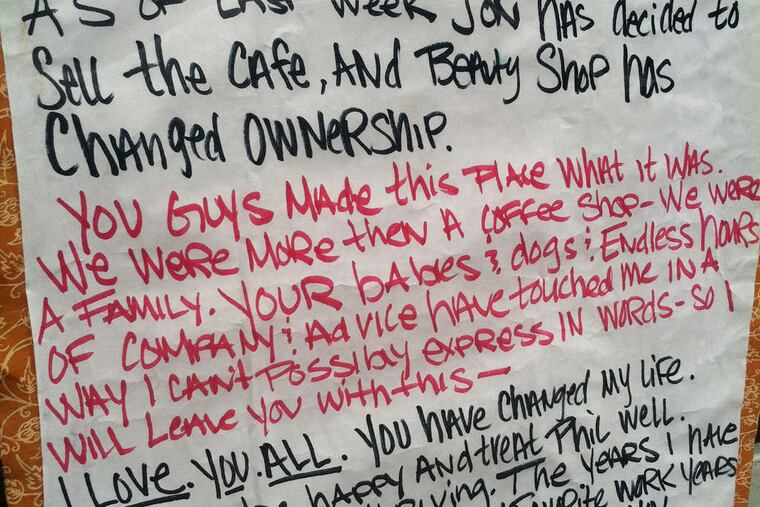 AS OF LAST WEEK JON HAS decided to
Sell the CAFE, AND BEAUTY SHOP has
CHANGED OWNERSHIP.
YOU GUYS MADE this PLACE WHAT it WAS.
WE WERE MORE then A COFFEE Shop- We WERE
A FAMILY. YOUR babies & dogs & Endless hours
OF COMPANY & Advice HAVE touched me IN A
WAY I CAN'T POSSIBLY EXPRESS IN WORDS- SO I
WILL LEAVE YOU with this —
I LOVE. YOU. ALL. YOU have CHANGED MY LIFE.
happy AND treat Phil well.
The YEARS I HAVE
WORK YEARS